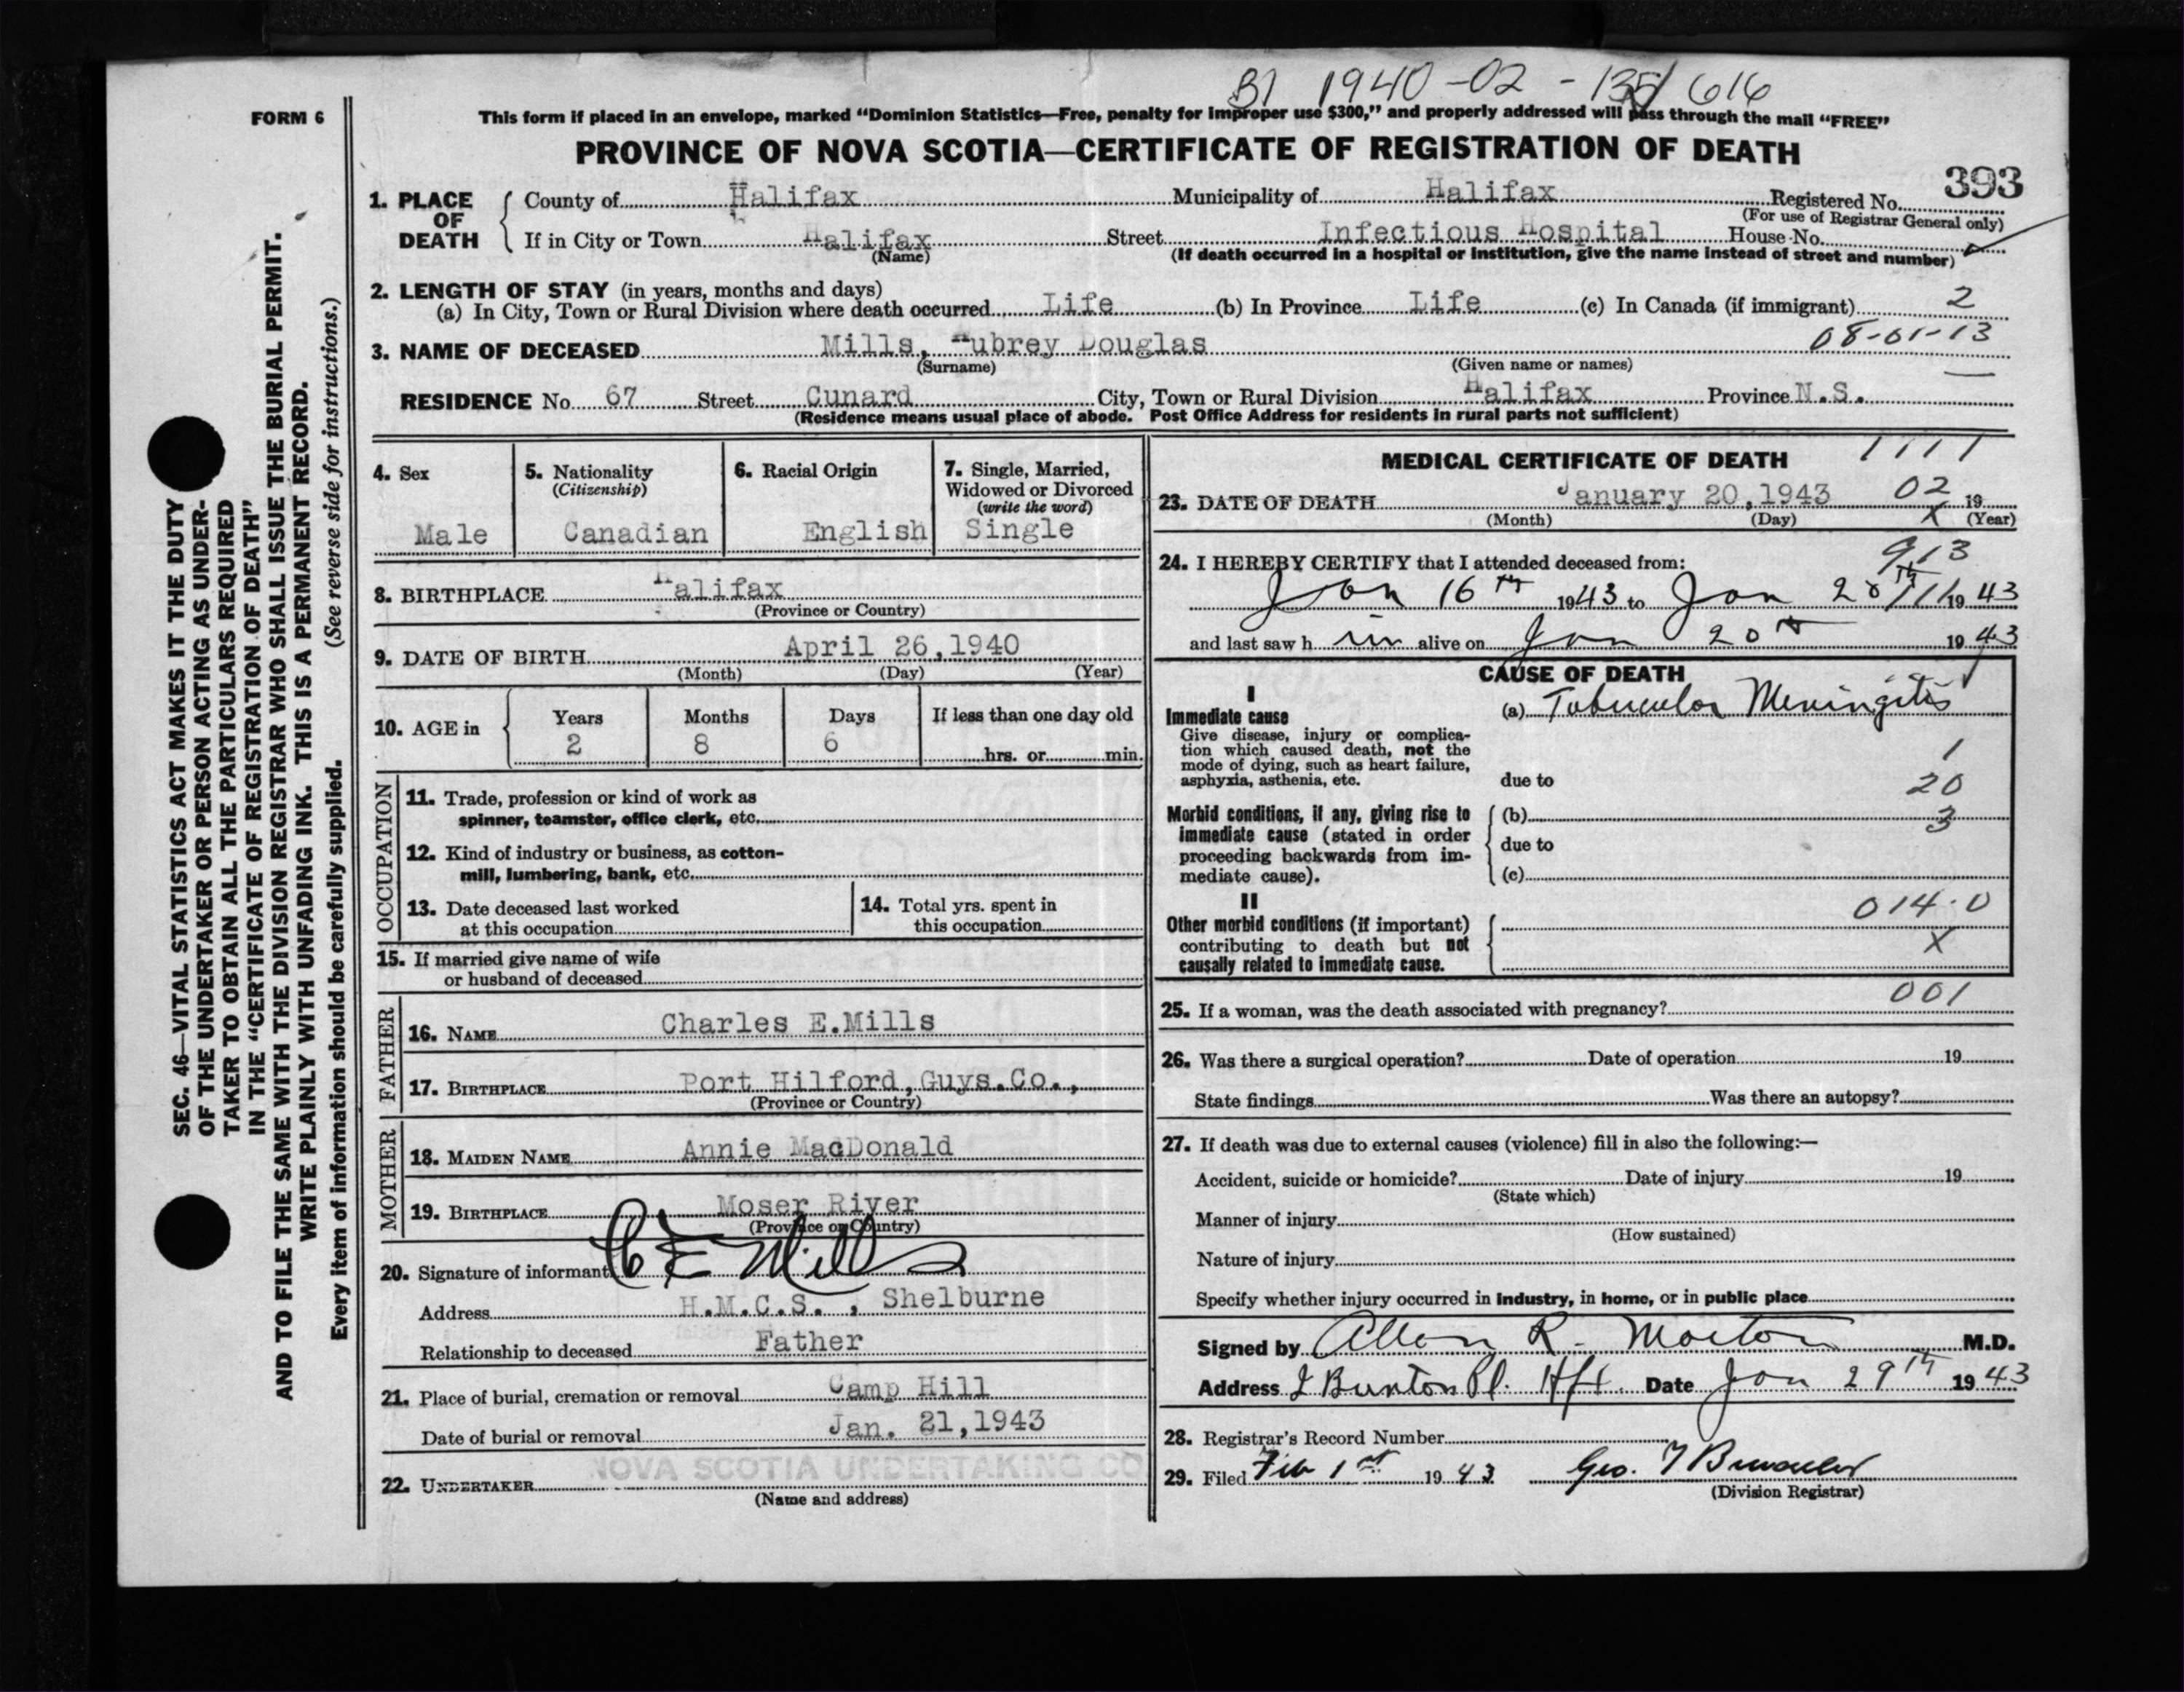 B1 1940-02-135616
FORM 6
This form if placed in an envelope, marked “Dominion Statistics—Free, penalty for improper use $300,” and properly addressed will pass through the mail “FREE”
PROVINCE OF NOVA SCOTIA—CERTIFICATE OF REGISTRATION OF DEATH
393
1. PLACE OF DEATH County of Halifax Municipality of Halifax Registered No.
(For use of Registrar General only)
If in City or Town Halifax Street Infectious Hospital House No.
(Name) (If death occurred in a hospital or institution, give the name instead of street and number)
2. LENGTH OF STAY (in years, months and days)
(a) In City, Town or Rural Division where death occurred Life (b) In Province Life (c) In Canada (if immigrant) 2
08-01-13
3. NAME OF DECEASED Mills, Aubrey Douglas
(Surname) (Given name or names)
RESIDENCE No. 67 Street Cunard City, Town or Rural Division Halifax Province N.S.
(Residence means usual place of abode. Post Office Address for residents in rural parts not sufficient)
4. Sex
Male
5. Nationality
(Citizenship)
Canadian
6. Racial Origin
English
7. Single, Married,
Widowed or Divorced
(write the word)
Single
8. BIRTHPLACE Halifax
(Province or Country)
9. DATE OF BIRTH April 26,1940
(Month) (Day) (Year)
10. AGE in Years Months Days If less than one day old
2 8 6 hrs. or min.
OCCUPATION
11. Trade, profession or kind of work as
spinner, teamster, office clerk, etc.
12. Kind of industry or business, as cotton-
mill, lumbering, bank, etc.
13. Date deceased last worked
at this occupation
14. Total yrs. spent in
this occupation
15. If married give name of wife
or husband of deceased
FATHER
16. NAME Charles E.Mills
17. BIRTHPLACE Port Hilford,Guys.Co.,
(Province or Country)
MOTHER
18. MAIDEN NAME Annie MacDonald
19. BIRTHPLACE Moser River
(Province or Country)
20. Signature of informant C E Mills
Address H.M.C.S. , Shelburne
Relationship to deceased Father
21. Place of burial, cremation or removal Camp Hill
Date of burial or removal Jan. 21,1943
22. UNDERTAKER NOVA SCOTIA UNDERTAKING CO
(Name and address)
1111
MEDICAL CERTIFICATE OF DEATH
23. DATE OF DEATH January 20,1943 02 19
(Month) (Day) X (Year)
913
24. I HEREBY CERTIFY that I attended deceased from:
Jan 16th 1943 to Jan 20th 1943
and last saw h im alive on Jan 20th 1943
CAUSE OF DEATH
I
Immediate cause
Give disease, injury or complica-
tion which caused death, not the
mode of dying, such as heart failure,
asphyxia, asthenia, etc.
(a) Tubercular Meningitis
1
due to 20
Morbid conditions, if any, giving rise to
immediate cause (stated in order
proceeding backwards from im-
mediate cause).
(b) 3
due to
(c)
II
Other morbid conditions (if important)
contributing to death but not
causally related to immediate cause.
014.0
X
001
25. If a woman, was the death associated with pregnancy?
26. Was there a surgical operation? Date of operation 19
State findings Was there an autopsy?
27. If death was due to external causes (violence) fill in also the following:—
Accident, suicide or homicide? Date of injury 19
(State which)
Manner of injury
(How sustained)
Nature of injury
Specify whether injury occurred in industry, in home, or in public place
Signed by Allan R. Morton M.D.
Address 2 Burton Pl. Hfx. Date Jan 29th 1943
28. Registrar's Record Number
29. Filed Feb 1st 1943 Geo.
(Division Registrar)
SEC. 46—VITAL STATISTICS ACT MAKES IT THE DUTY
OF THE UNDERTAKER OR PERSON ACTING AS UNDER-
TAKER TO OBTAIN ALL THE PARTICULARS REQUIRED
IN THE “CERTIFICATE OF REGISTRATION OF DEATH”
AND TO FILE THE SAME WITH THE DIVISION REGISTRAR WHO SHALL ISSUE THE BURIAL PERMIT.
WRITE PLAINLY WITH UNFADING INK. THIS IS A PERMANENT RECORD.
Every item of information should be carefully supplied. (See reverse side for instructions.)